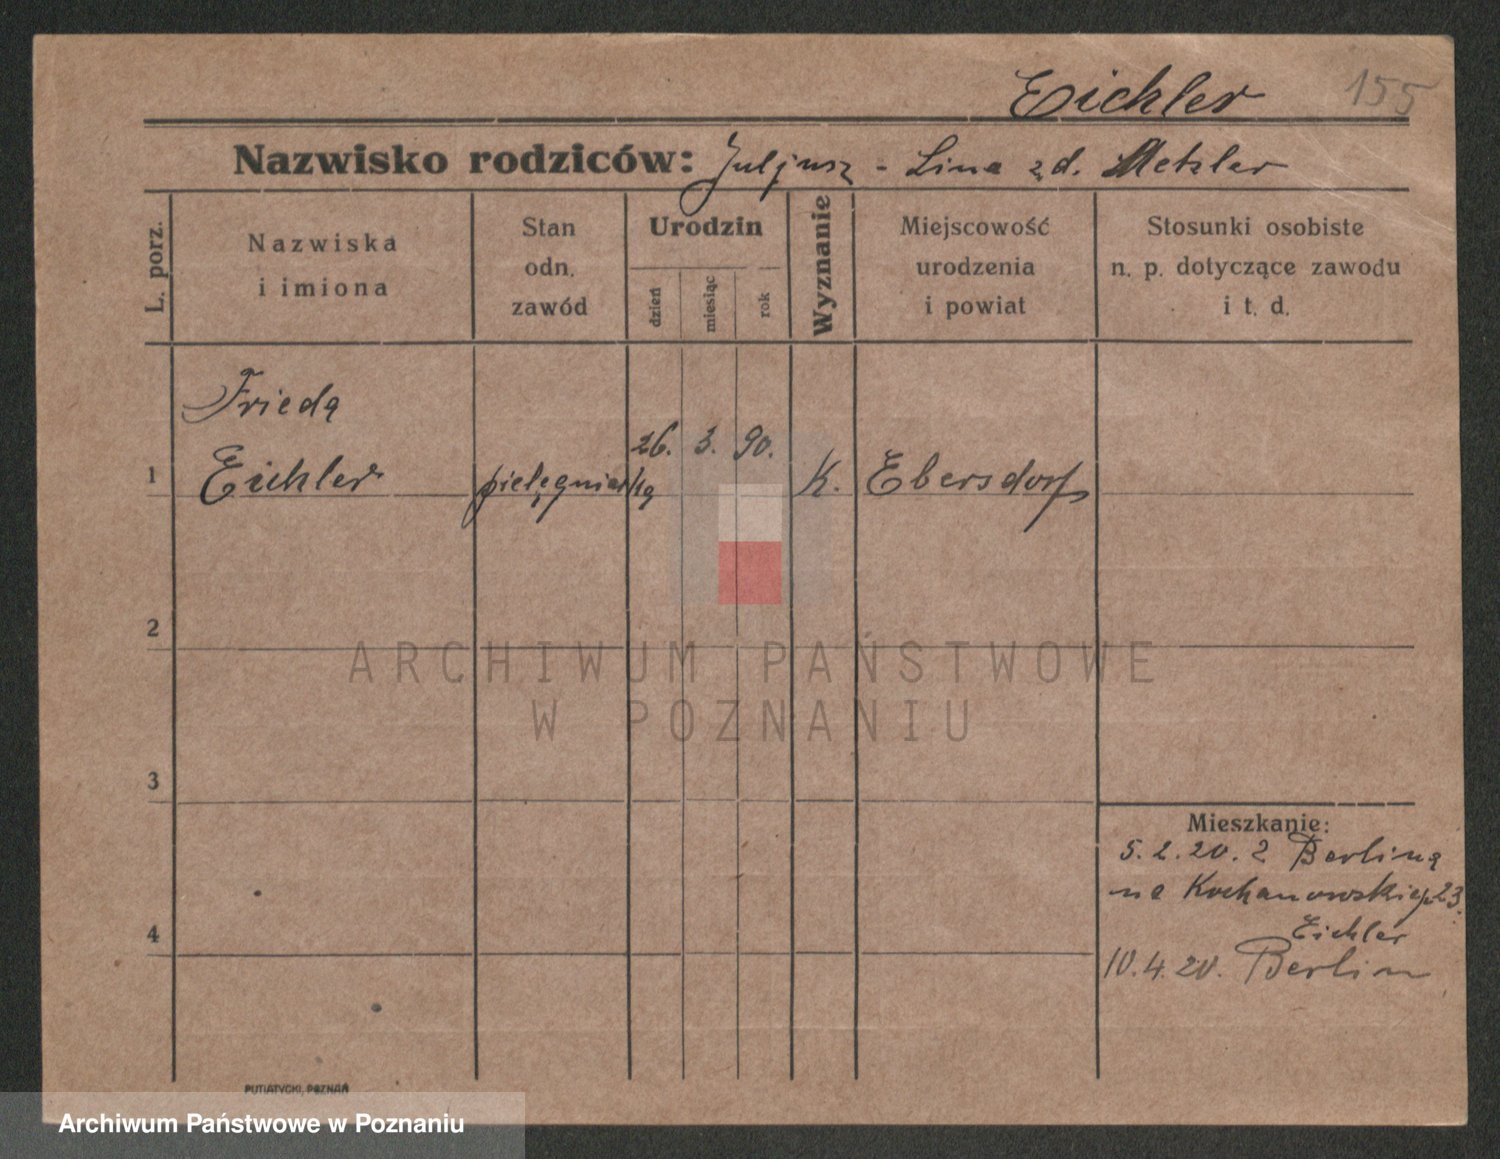 Eichler 155
Nazwisko rodziców: Juljusz - Lina z d. Metzler
L. porz.
Nazwiska
i imiona
Stan
odn.
zawód
Urodzin
dzień
miesiąc
rok
Wyznanie
Miejscowość
urodzenia
i powiat
Stosunki osobiste
n. p. dotyczące zawodu
i t. d.
Frieda
1 Eichler pielęgniarka 26. 3. 90. K. Ebersdorf
2
ARCHIWUM PAŃSTWOWE
W POZNANIU
3
Mieszkanie:
5.2.20. z Berlina
na Kochanowskiej 23.
4
Eichler
10.4.20. Berlin
PUTIATYCKI, POZNAŃ
Archiwum Państwowe w Poznaniu